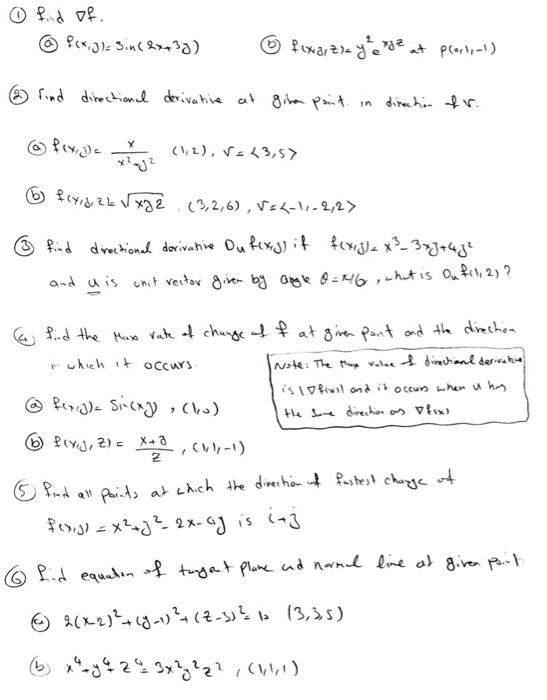 ① find ∇f.
ⓐ f(x,y)= Sin(2x+3y)
ⓑ f(x,y,z)= y²e^{xyz} at P(0,1,-1)
② Find directional derivative at given point in direction of v.
ⓐ f(x,y)= x/(x²+y²) (1,2), v=<3,5>
ⓑ f(x,y,z)= √xyz, (3,2,6), v=<-1,-2,2>
③ Find directional derivative Duf(x,y) if f(x,y)= x³-3xy+4y²
and u is unit vector given by angle θ=π/6, what is Duf(1,2)?
④ find the Max rate of change of f at given point and the direction
in which it occurs.
Note: The Max value of directional derivative
is |∇f(x)| and it occurs when u has
the same direction as ∇f(x)
ⓐ f(x,y)= Sin(xy), (1,0)
ⓑ f(x,y,z) = (x+y)/z, (1,1,-1)
⑤ find all points at which the direction of fastest change of
f(x,y) = x²+y²-2x-4y is i+j
⑥ find equation of tangent plane and normal line at given point
ⓐ 2(x-2)²+(y-1)²+(z-3)²= 10 (3,3,5)
ⓑ x⁴+y⁴+z⁴=3x²y²z², (1,1,1)